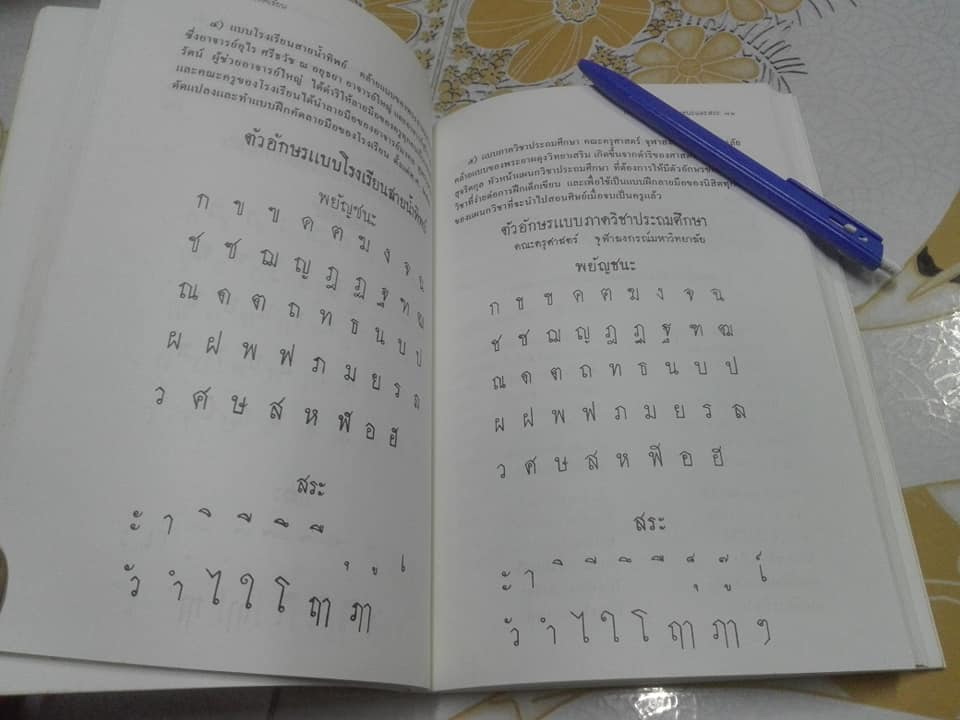 ๔) แบบโรงเรียนสายน้ำทิพย์ คล้ายแบบของ
ซึ่งอาจารย์อุไร ศรีธวัช ณ อยุธยา อาจารย์ใหญ่ และ
รัตน์ ผู้ช่วยอาจารย์ใหญ่ ได้ดำริให้ลายมือของครูทุกคน
และคณะครูของโรงเรียนได้นำลายมือของอาจารย์
ดัดแปลงและทำแบบฝึกคัดลายมือของโรงเรียน ตั้งแต่
ตัวอักษรแบบโรงเรียนสายน้ำทิพย์
พยัญชนะ
ก ข ฃ ค ฅ ฆ ง จ ฉ
ช ซ ฌ ญ ฎ ฏ ฐ ฑ ฒ
ณ ด ต ถ ท ธ น บ ป
ผ ฝ พ ฟ ภ ม ย ร ล
ว ศ ษ ส ห ฬ อ ฮ
สระ
ะ า ิ ี ึ ื ุ ู เ
ั ำ ไ ใ โ ฤๅ ฦๅ
๕) แบบภาควิชาประถมศึกษา คณะครุศาสตร์
คล้ายแบบของพระยาผดุงวิทยาเสริม เกิดขึ้นจากดำริของ
สุจริตกุล หัวหน้าแผนกวิชาประถมศึกษา ที่ต้องการให้มีตัวอักษร
วิชาที่ง่ายต่อการฝึกเด็กเขียน และเพื่อใช้เป็นแบบฝึกลายมือของนิสิต
ของแผนกวิชาที่จะนำไปสอนศิษย์เมื่อจบเป็นครูแล้ว
ตัวอักษรแบบภาควิชาประถมศึกษา
คณะครุศาสตร์ จุฬาลงกรณ์มหาวิทยาลัย
พยัญชนะ
ก ข ฃ ค ฅ ฆ ง จ ฉ
ช ซ ฌ ญ ฎ ฏ ฐ ฑ ฒ
ณ ด ต ถ ท ธ น บ ป
ผ ฝ พ ฟ ภ ม ย ร ล
ว ศ ษ ส ห ฬ อ ฮ
สระ
ะ า ิ ี ึ ื ุ ู เ
ั ำ ไ ใ โ ฤๅ ฦๅ ๆ